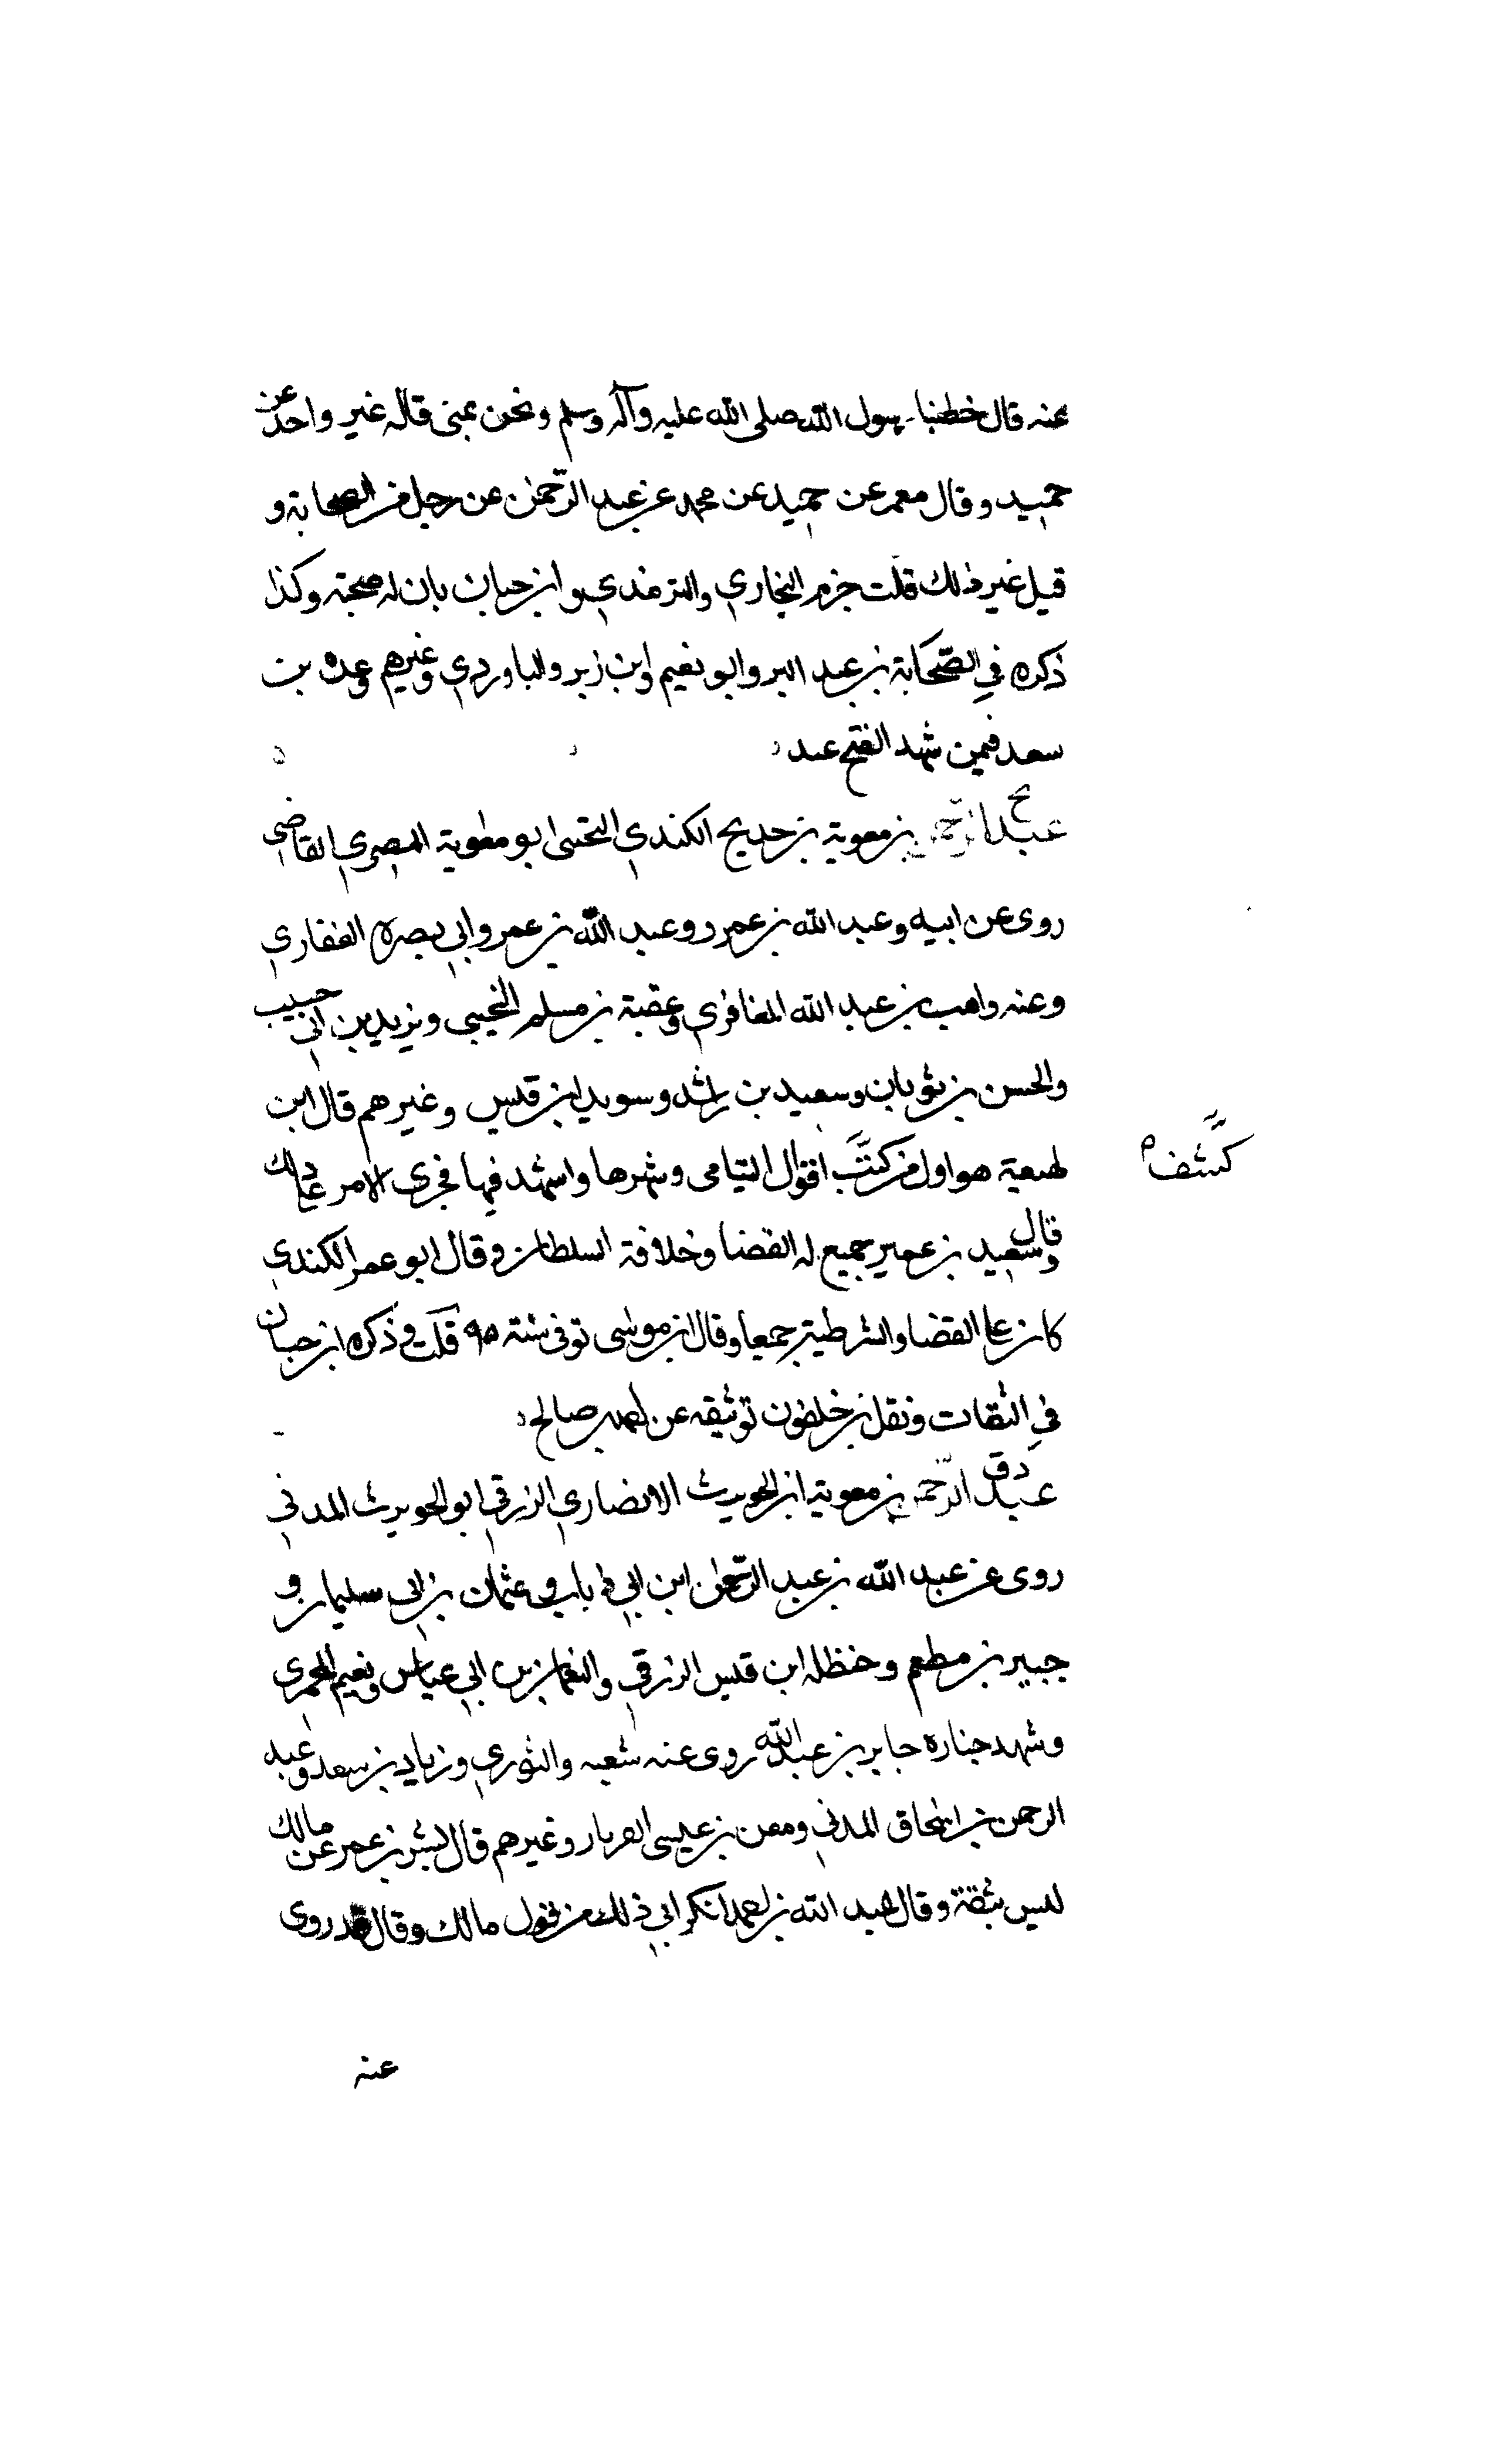 عنه قال خطبنا رسول الله صلى الله عليه وآله وسلم ونحن بمنى قاله غير واحد عن
حميد وقال معمر عن حميد عن محمد عن عبد الرحمن عن رجل من الصحابة و
قيل غير ذلك قلت جزم البخاري والترمذي وابن حبان بان له صحبة وكذا
ذكره في الصحابة بن عبد البر وابو نعيم وابن زبر والباوردي وغيرهم وعده بن
سعد فيمن شهد الفتح
بخ
عبد الرحمن بن معوية بن حديج الكندي التجيبي ابو معوية المصري القاضي
روى عن ابيه وعبد الله بن عمرو وعبد الله بن عمر وابي بصره الغفاري
وعنه واهب بن عبد الله المغافري وعقبة بن مسلم التجيبي ويزيد بن ابي حبيب
والحسن بن ثوبان وسعيد بن راشد وسويد ابن قيس وغيرهم قال ابن
لهيعة هو اول من كشَّف اقوال اليتامى وشهرها واشهد فيها فجرى الامر على ذلك
كشَّف
وقال سعيد بن عمير جميع له القضا وخلافة السلطان وقال ابو عمر الكندي
كان على القضا والشرطية جمعا وقال ابن موسى توفى سنة ٩٥ قلت وذكره ابن حبان
في الثقات ونقل بن خلفون توثيقه عن احمد بن صالح
د ق
عبد الرحمن بن معوية ابن الحويرث الانصاري الزرقي ابو الحويرث المدني
روى عن عبد الله بن عبد الرحمن ابن ابي ذباب وعثمان بن ابي سليمان و
جبير بن مطعم وحنظله ابن قيس الزرقي والنعمان بن ابي عياش ونعيم المجمري
وشهد جنازه جابر بن عبد الله روى عنه شعبه والثوري وزياد بن سعد وعبد
الرحمن بن اسحاق المدني ومعن بن عيسى وغيرهم قال بشر بن عمر عن مالك
ليس بثقة وقال عبد الله بن احمد انكر ابي ذلك من قول مالك وقال قد روى
عنه